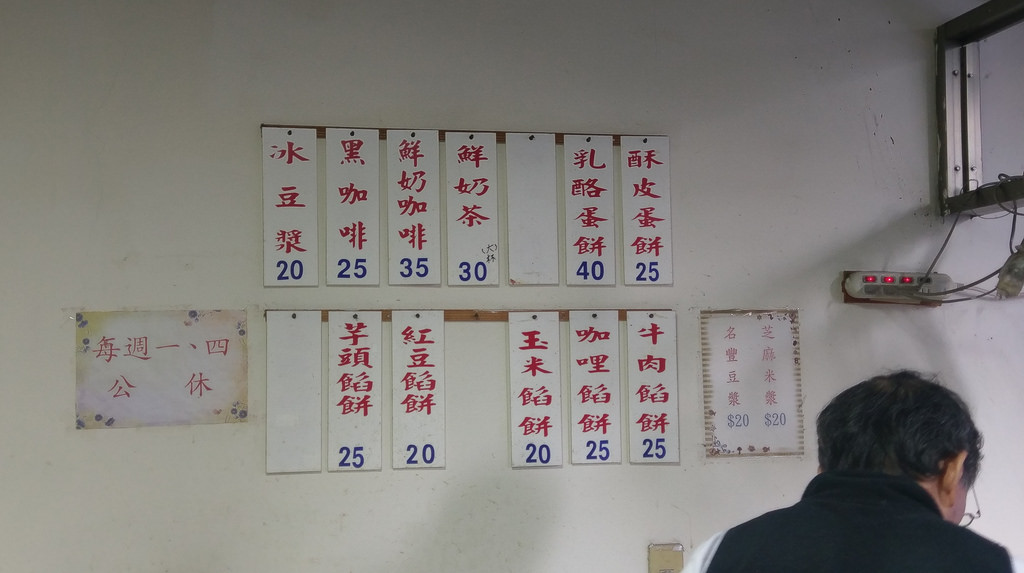 冰豆漿 20
黑咖啡 25
鮮奶咖啡 35
鮮奶茶 (大杯) 30
乳酪蛋餅 40
酥皮蛋餅 25
芋頭餡餅 25
紅豆餡餅 20
玉米餡餅 20
咖哩餡餅 25
牛肉餡餅 25
每週一、四
公休
芝麻米漿 $20
名豐豆漿 $20